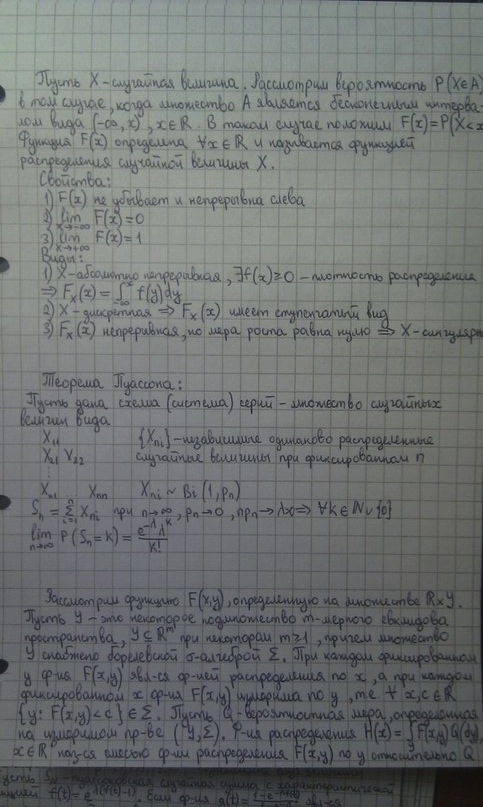 Пусть X - случайная величина. Рассмотрим вероятность P(X∈A)
в том случае, когда множество A является бесконечным интерва-
лом вида (-∞, x), x∈ℝ. В таком случае положим F(x)=P(X<x
Функция F(x) определена ∀x∈ℝ и называется функцией
распределения случайной величины X.
Свойства:
1) F(x) не убывает и непрерывна слева
2) lim x→-∞ F(x)=0
3) lim x→+∞ F(x)=1
Виды:
1) X-абсолютно непрерывная, ∃f(x)≥0 - плотность распределения
⇒ F_X(x) = ∫_{-∞}^x f(y)dy
2) X-дискретная ⇒ F_X(x) имеет ступенчатый вид
3) F_X(x) непрерывная, но мера роста равна нулю ⇒ X-сингулярн
Теорема Пуассона:
Пусть дана схема (система) серий - множество случайных
величин вида
X₁₁ {X_{ni}}-независимые одинаково распределенные
X₂₁ X₂₂ случайные величины при фиксированном n
⋮
X_{n1} X_{nn} X_{ni} ~ Bi(1, p_n)
S_n = Σ_{i=1}^n X_{ni} при n→∞, p_n→0, np_n→λ>0 ⇒ ∀k∈ℕ∪{0}
lim n→∞ P(S_n=k) = e^{-λ}λ^k / k!
Рассмотрим функцию F(x,y), определенную на множестве ℝ×Y.
Пусть Y - это некоторое подмножество m-мерного евклидова
пространства, Y⊆ℝ^m при некотором m≥1, причем множество
Y снабжено борелевской σ-алгеброй Σ. При каждом фиксированном
y ф-ия F(x,y) явл-ся ф-ией распределения по x, а при каждом
фиксированном x ф-ия F(x,y) измерима по y, т.е ∀ x,c∈ℝ
{y: F(x,y)<c}∈Σ. Пусть Q-вероятностная мера, определенная
на измеримом пр-ве (Y,Σ). Ф-ия распределения H(x)=∫_Y F(x,y)Q(dy),
x∈ℝ наз-ся смесью ф-ии распределения F(x,y) по y относительно Q
случайная сумма с характеристической